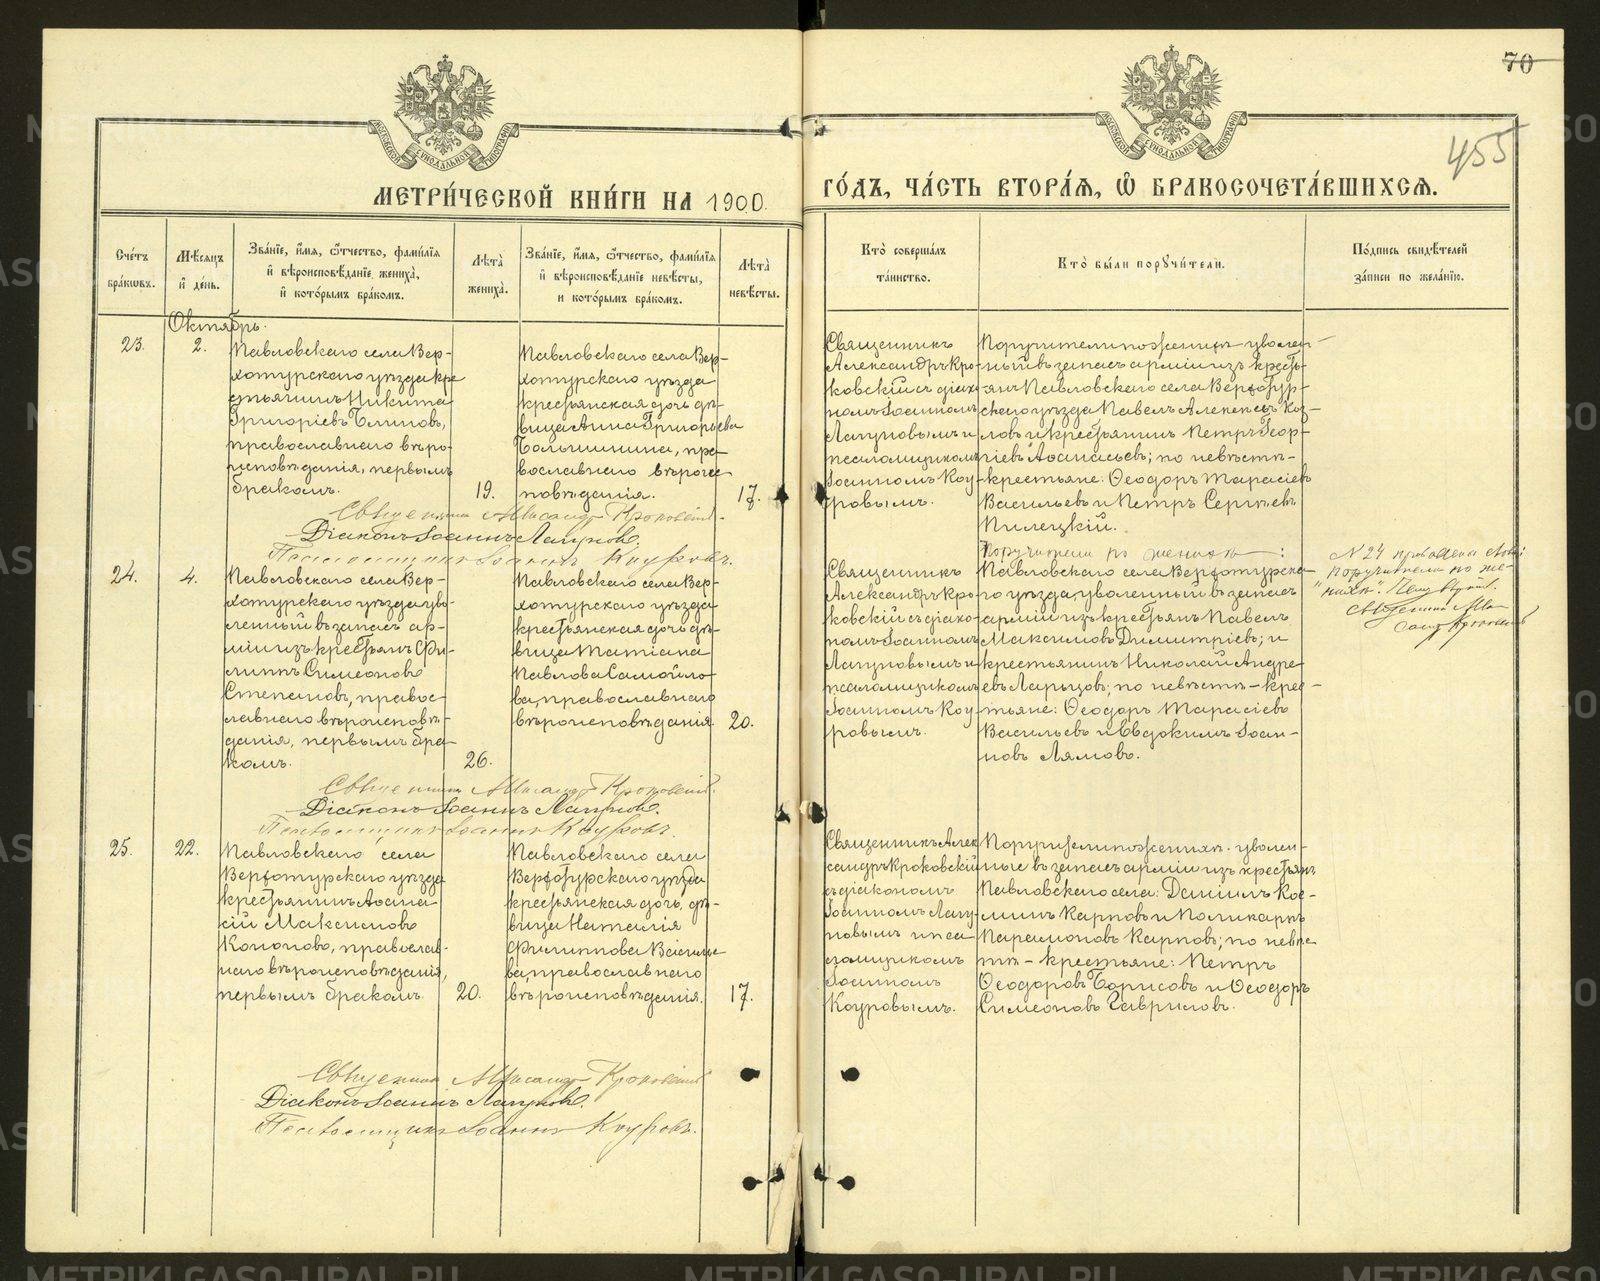 70
455
МЕТРИ́ЧЕСКОЙ КНИ́ГИ НА 1900.
ГО́ДЪ, ЧА́СТЬ ВТОРА́Ѧ, Ѽ БРАКОСОЧЕТА́ВШИХСѦ.
Сче́тъ бра́кѡвъ.
Мѣ́сѧцъ и҆ де́нь.
Зва́нїе, и҆́мѧ, ѻ҆́тчество, фами́лїѧ
и҆ вѣроисповѣ́данїе жениха̀,
и҆ кото́рымъ бра́комъ.
Лѣта̀ жениха̀.
Зва́нїе, и҆́мѧ, ѻ҆́тчество, фами́лїѧ
и҆ вѣроисповѣ́данїе невѣ́сты,
и кото́рымъ бра́комъ.
Лѣта̀ невѣ́сты.
Кто̀ соверша́лъ
та́инство.
Кто̀ бы́ли порꙋчи́тели.
По́дпись свидѣ́телей
за́писи по жела́нїю.
Октябрь.
23.
2.
Павловскаго села Вер-
хотурскаго уѣзда кре
стьянинъ Никита
Григоріевъ Блиновъ,
православнаго вѣро-
исповѣданія, первымъ
бракомъ.
19.
Павловскаго села Вер-
хотурскаго уѣзда
крестьянская дочь дѣ-
вица Анна Григорьева
Большинина, пра-
вославнаго вѣроис
повѣданія.
17.
Священникъ
Александръ Кро-
ковскій съ діако-
номъ Іоанномъ
Лагуновымъ и
псаломщикомъ
Іоанномъ Коу-
ровымъ.
Поручители по женихѣ: уволен-
ный въ запасъ арміи изъ кресть-
янъ Павловскаго села Верхотур-
скаго уѣзда Павелъ Алексѣевъ Коз-
ловъ и крестьянинъ Петръ Геор-
гіевъ Аѳанасьевъ; по невѣстѣ-
крестьяне: Ѳеодоръ Тарасіевъ
Васильевъ и Петръ Сергѣевъ
Пилецкій.
Священникъ Александръ Кроковскій.
Діаконъ Іоаннъ Лагуновъ.
Псаломщикъ Іоаннъ Коуровъ.
24.
4.
Павловскаго села Вер-
хотурскаго уѣзда уво-
ленный въ запасъ ар-
міи изъ крестьянъ Фи-
липпъ Симеоновъ
Степановъ, правос-
лавнаго вѣроисповѣ-
данія, первымъ бра-
комъ.
26.
Павловскаго села Вер-
хотурскаго уѣзда
крестьянская дочь дѣ-
вица Татіана
Павлова Самойло-
ва, православнаго
вѣроисповѣданія.
20.
Священникъ
Александръ Кро-
ковскій съ діако-
номъ Іоанномъ
Лагуновымъ и
псаломщикомъ
Іоанномъ Коу-
ровымъ.
Поручители по женихѣ:
Павловскаго села Верхотурска-
го уѣзда, уволенный въ запасъ
арміи изъ крестьянъ Павелъ
Максимовъ Димитріевъ; и
крестьянинъ Николай Андре-
евъ Ларьцовъ; по невѣстѣ-крес-
тьяне: Ѳеодоръ Тарасіевъ
Васильевъ и Евдокимъ Іоан-
новъ Лямовъ.
№ 24
поручители по же-
нихѣ".
Священникъ Алек
сандръ Кроковскій
Священникъ Александръ Кроковскій.
Діаконъ Іоаннъ Лагуновъ.
Псаломщикъ Іоаннъ Коуровъ.
25.
22.
Павловскаго села
Верхотурскаго уѣзда
крестьянинъ Аѳана-
сій Максимовъ
Кононовъ, православ-
наго вѣроисповѣданія,
первымъ бракомъ.
20.
Павловскаго села
Верхотурскаго уѣзда
крестьянская дочь, дѣ-
вица Наталія
Филиппова Василье
ва, православнаго
вѣроисповѣданія.
17.
Священникъ Алек
сандръ Кроковскій
съ діакономъ
Іоанномъ Лагу-
новымъ и пса
ломщикомъ
Іоанномъ
Коуровымъ.
Поручители по женихѣ: уволен-
ные въ запасъ арміи изъ крестьянъ
Павловскаго села: Даніилъ Кос-
минъ Карповъ и Поликарпъ
Парамоновъ Карповъ; по невѣс
тѣ - крестьяне: Петръ
Ѳеодоровъ Борисовъ и Ѳеодоръ
Симеоновъ Гавриловъ.
Священникъ Александръ Кроковскій
Діаконъ Іоаннъ Лагуновъ.
Псаломщикъ Іоаннъ Коуровъ.
METRIKI.GASO-URAL.RU